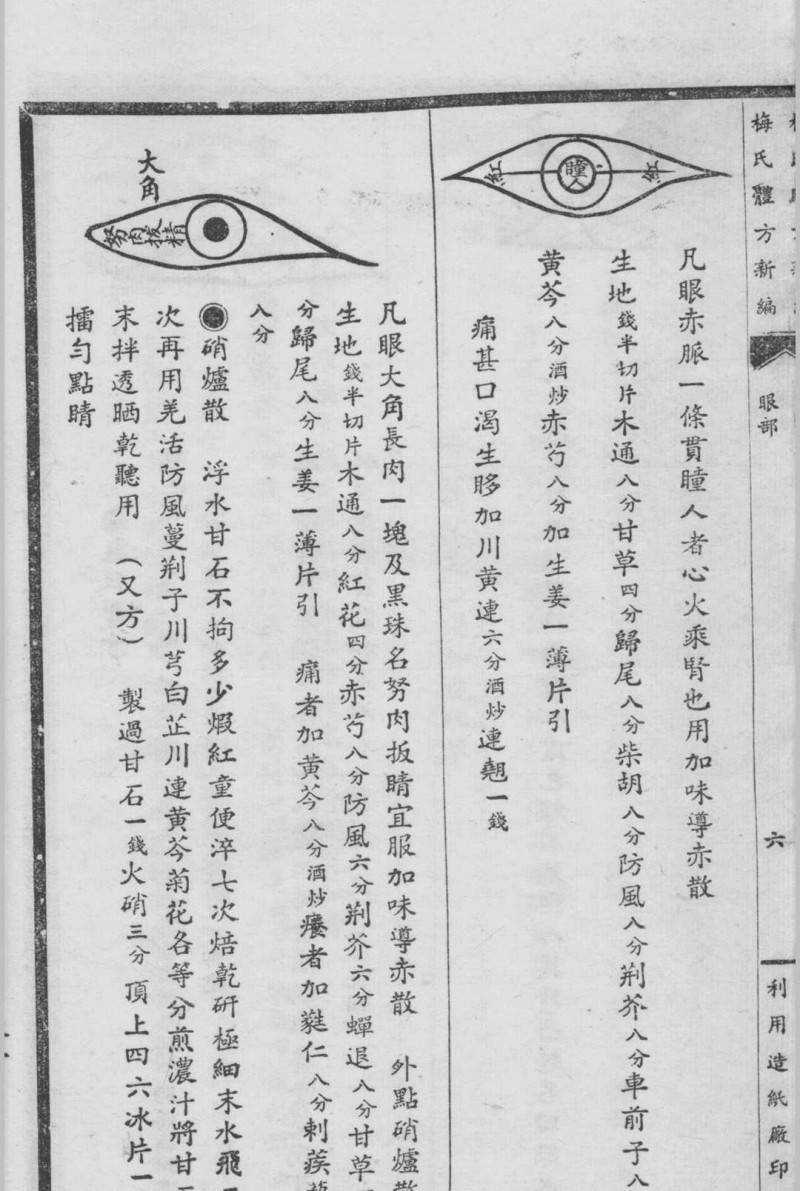 梅氏體方新編
眼部
六
利用造紙廠印
紅
瞳人
紅
凡眼赤脈一條貫瞳人者心火乘腎也用加味導赤散
生地錢半切片木通八分甘草四分歸尾八分柴胡八分防風八分荆芥八分車前子八
黄芩八分酒炒赤芍八分加生姜一薄片引
痛甚口渴生眵加川黄連六分酒炒連翹一錢
大角
努肉扳精
凡眼大角長肉一塊及黑珠名努肉扳睛宜服加味導赤散 外點硝爐散
生地錢半切片木通八分紅花四分赤芍八分防風六分荆芥六分蟬退八分甘草
分歸尾八分生姜一薄片引 痛者加黄芩八分酒炒癢者加蕤仁八分刺蒺蔾
八分
硝爐散 浮水甘石不拘多少煅紅童便淬七次焙乾研極細末水飛
次再用羌活防風蔓荆子川芎白芷川連黄芩菊花各等分煎濃汁將甘
末拌透晒乾聽用 （又方） 製過甘石一錢火硝三分頂上四六冰片一
擂勻點睛